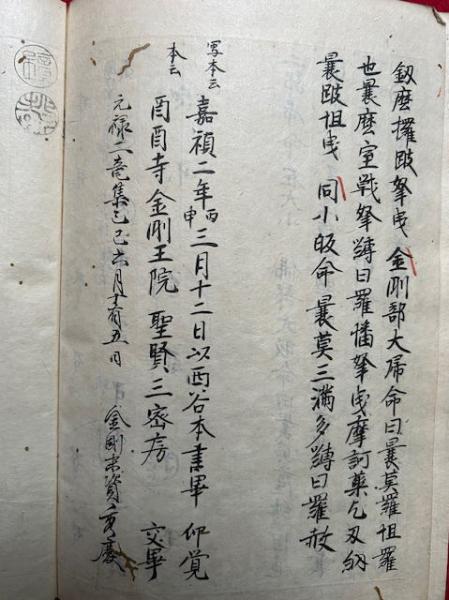 釼麽攞跛拏曳金剛部大帰命曰曩莫羅怛羅
也曩麽室戦拏嚩日羅幡拏曳摩訶薬乞叉細
曩跛怛曳 同小帰命曩莫三満多嚩日羅赦
写本云
嘉禎二年丙申三月十二日以西谷本書畢 仰覚
本云
酉酉寺金剛王院 聖賢三密房 交畢
元禄二竜集己巳六月十有五日 金剛末資